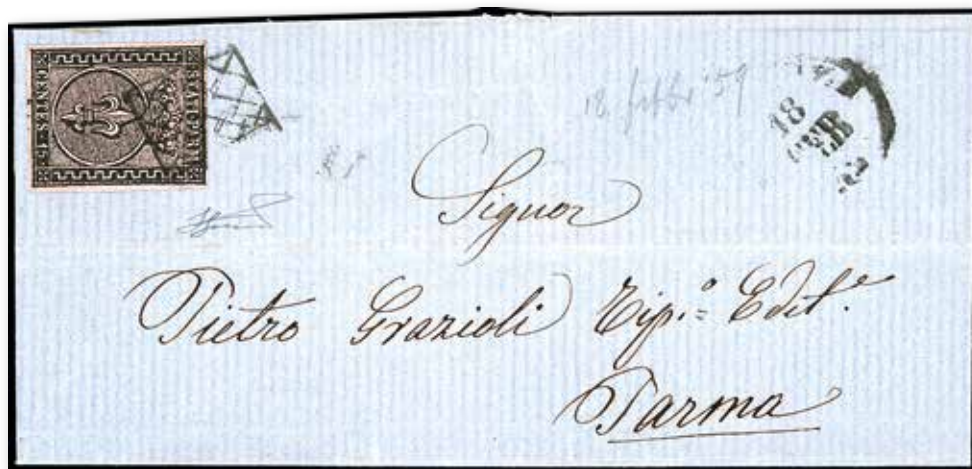 STATI PARM.
CENTES. 15
18 febbr '59
18
FEB
Signor
Pietro Grazioli Tip.º = Edit.e
Parma